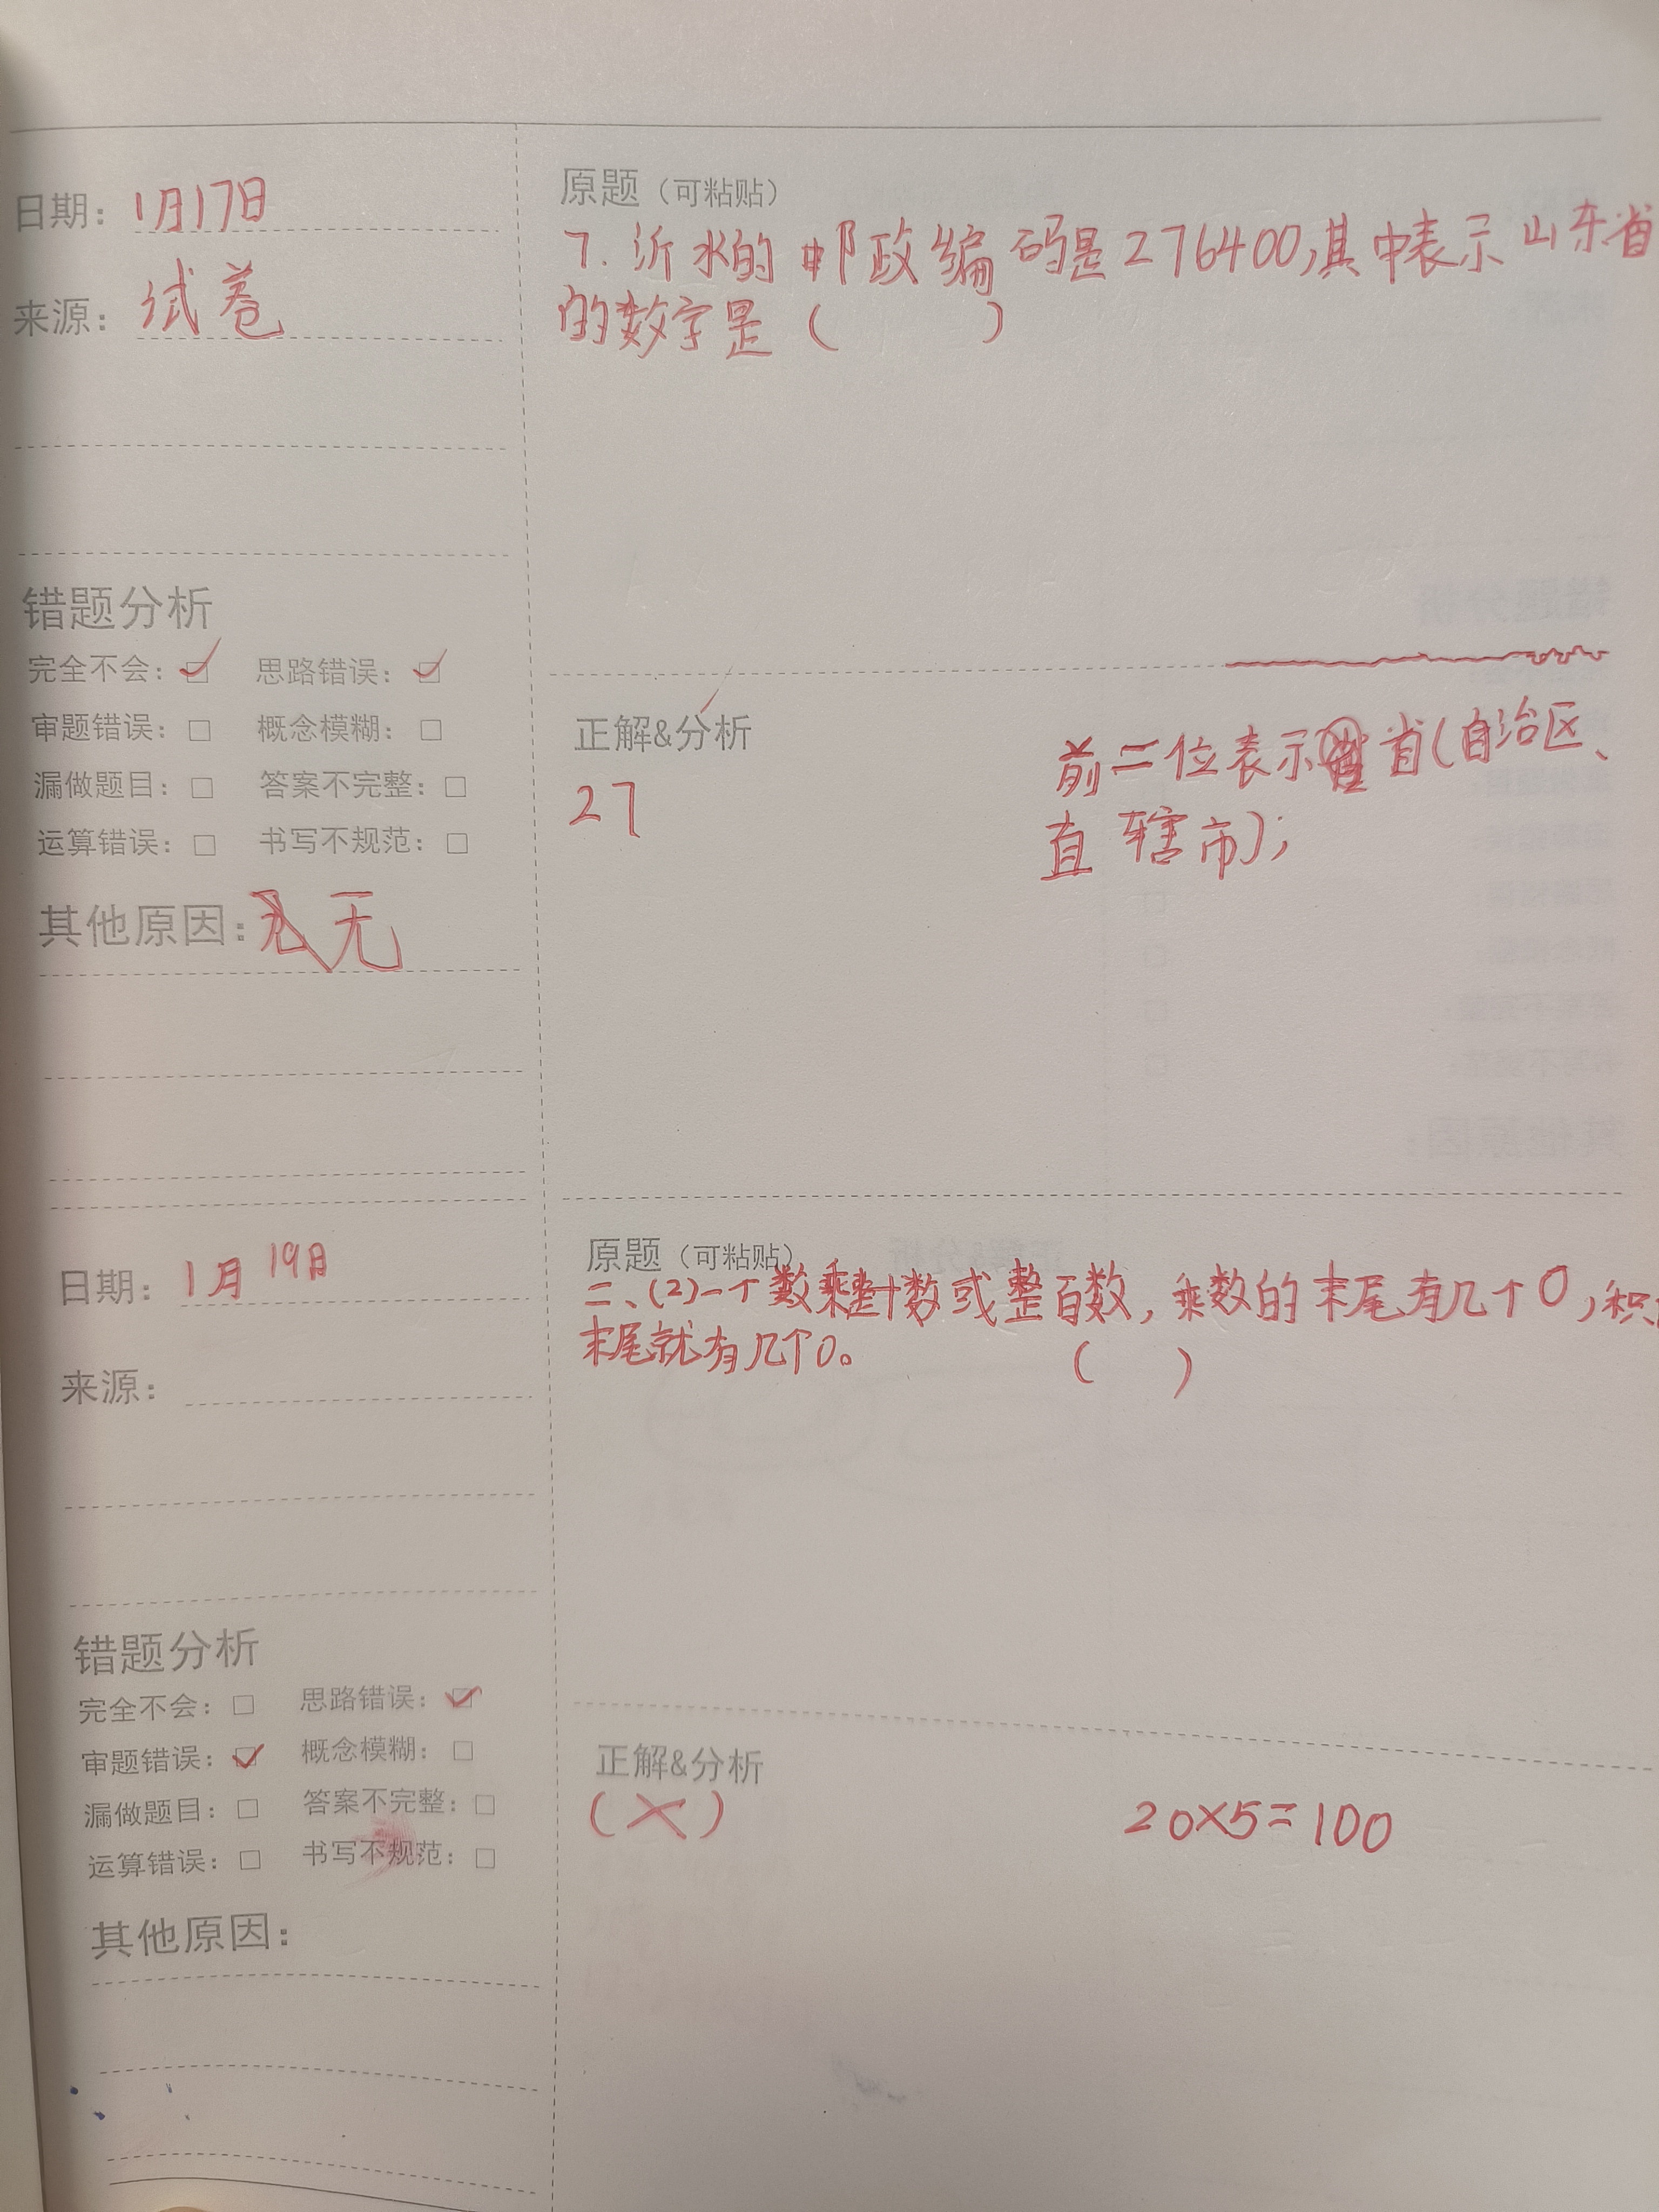 日期：1月17日
来源：试卷
原题（可粘贴）
7. 沂水的邮政编码是276400,其中表示山东省
的数字是（　　）
错题分析
完全不会：☑ 思路错误：☑
审题错误：□ 概念模糊：□
漏做题目：□ 答案不完整：□
运算错误：□ 书写不规范：□
其他原因：无
正解&分析
27
前二位表示省(自治区、
直辖市)；
日期：1月19日
来源：
原题（可粘贴）
二、(2)一个数乘整十数或整百数，乘数的末尾有几个0，积
末尾就有几个0。（　　）
错题分析
完全不会：□ 思路错误：☑
审题错误：☑ 概念模糊：□
漏做题目：□ 答案不完整：□
运算错误：□ 书写不规范：□
其他原因：
正解&分析
(×)
20×5=100